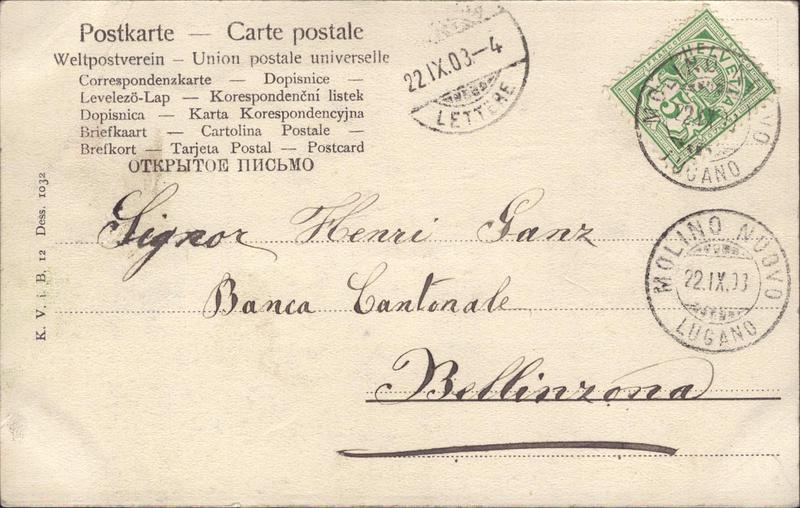 Postkarte — Carte postale
Weltpostverein — Union postale universelle
Correspondenzkarte — Dopisnice —
Levelező-Lap — Korespondenční lístek
Dopisnica — Karta Korespondencyjna
Briefkaart — Cartolina Postale —
Brefkort — Tarjeta Postal — Postcard
ОТКРЫТОЕ ПИСЬМО
22.IX.03-4
LETTERE
HELVETIA
5
MOLINO NUOVO
LUGANO
K. V. i. B. 12 Dess. 1032
Signor Henri Ganz
Banca Cantonale
Bellinzona
MOLINO NUOVO
22.IX.03
LUGANO